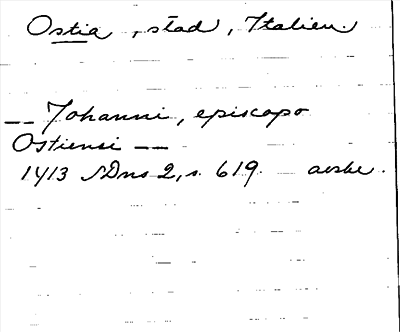 Ostia, stad, Italien.
-- Johanni, episcopo
Ostiensi --
1413 SDns 2, s. 619 avskr.